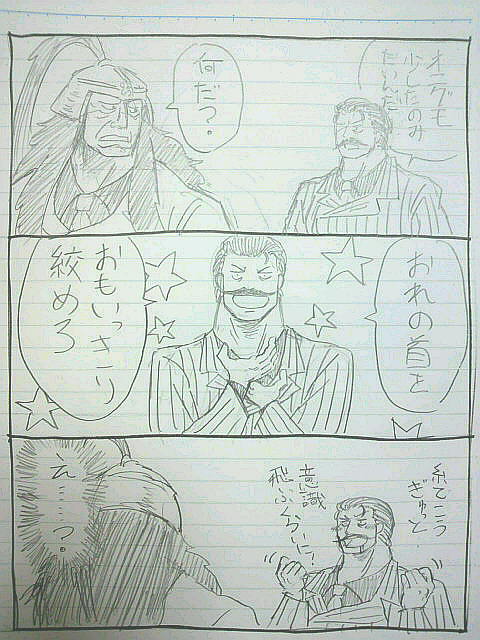 オニグモ
少したのみ
たいんだ
何だ?
おれの首を
おもいっきり
絞めろ
糸でこう
ぎゅっと
意識
飛ぶくらいに?
え……っ?